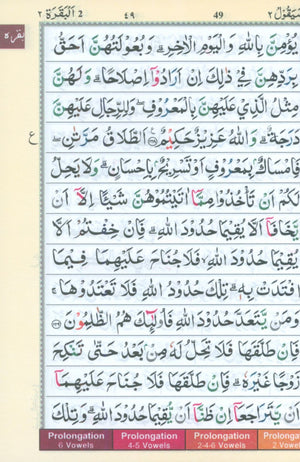 سَيَقُولُ ٢ 49 ٤٩ 2 اَلْبَقَرَة ٢
يُؤْمِنَّ بِاللّٰهِ وَالْيَوْمِ الْاٰخِرِ ؕ وَبُعُوْلَتُهُنَّ اَحَقُّ
بقره
بِرَدِّهِنَّ فِيْ ذٰلِكَ اِنْ اَرَادُوْۤا اِصْلَاحًا ؕ وَلَهُنَّ
مِثْلُ الَّذِيْ عَلَيْهِنَّ بِالْمَعْرُوْفِ ۪ وَلِلرِّجَالِ عَلَيْهِنَّ
دَرَجَةٌ ؕ وَاللّٰهُ عَزِيْزٌ حَكِيْمٌ اَلطَّلَاقُ مَرَّتٰنِ ۪
ع
فَاِمْسَاكٌۢ بِمَعْرُوْفٍ اَوْ تَسْرِيْحٌۢ بِاِحْسَانٍ ؕ وَلَا يَحِلُّ
لَكُمْ اَنْ تَاْخُذُوْا مِمَّاۤ اٰتَيْتُمُوْهُنَّ شَيْـًٔا اِلَّاۤ اَنْ
يَّخَافَاۤ اَلَّا يُقِيْمَا حُدُوْدَ اللّٰهِ ؕ فَاِنْ خِفْتُمْ اَلَّا
يُقِيْمَا حُدُوْدَ اللّٰهِ ۙ فَلَا جُنَاحَ عَلَيْهِمَا فِيْمَا
افْتَدَتْ بِهٖ ؕ تِلْكَ حُدُوْدُ اللّٰهِ فَلَا تَعْتَدُوْهَا ۚ
وَمَنْ يَّتَعَدَّ حُدُوْدَ اللّٰهِ فَاُولٰٓئِكَ هُمُ الظّٰلِمُوْنَ
فَاِنْ طَلَّقَهَا فَلَا تَحِلُّ لَهٗ مِنْۢ بَعْدُ حَتّٰى تَنْكِحَ
زَوْجًا غَيْرَهٗ ؕ فَاِنْ طَلَّقَهَا فَلَا جُنَاحَ عَلَيْهِمَاۤ
اَنْ يَّتَرَاجَعَاۤ اِنْ ظَنَّاۤ اَنْ يُّقِيْمَا حُدُوْدَ اللّٰهِ ؕ وَتِلْكَ
Prolongation Prolongation Prolongation Prolonga
6 Vowels 4-5 Vowels 2-4-6 Vowels 2 Vowel